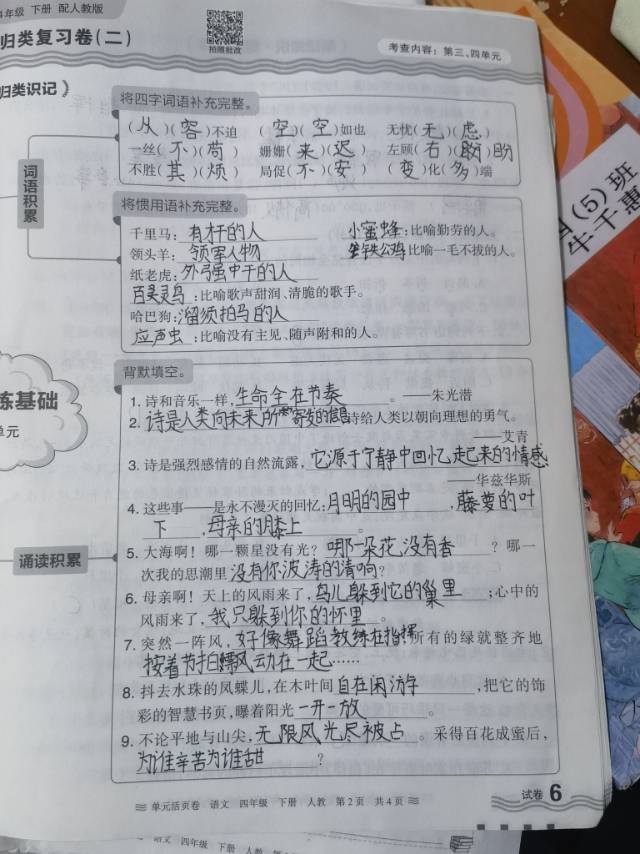 4年级 下册 配人教版
归类复习卷(二)
拍照批改
考查内容:第三、四单元
归类识记
词语积累
将四字词语补充完整。
(从)(容)不迫 (空)(空)如也 无忧(无)(虑)
一丝(不)(苟) 姗姗(来)(迟) 左顾(右)(盼)盼
不胜(其)(烦) 局促(不)(安) (变)化(多)端
将惯用语补充完整。
千里马:有才的人 小蜜蜂:比喻勤劳的人。
领头羊:领军人物 铁公鸡:比喻一毛不拔的人。
纸老虎:外强中干的人
百灵鸟:比喻歌声甜润、清脆的歌手。
哈巴狗:溜须拍马的人
应声虫:比喻没有主见、随声附和的人。
练基础
单元
诵读积累
背默填空。
1. 诗和音乐一样,生命全在节奏。——朱光潜
2. 诗是人类向未来所寄发的信息诗给人类以朝向理想的勇气。
——艾青
3. 诗是强烈感情的自然流露,它源于宁静中回忆起来的情感
——华兹华斯
4. 这些事——是永不漫灭的回忆:月明的园中,藤萝的叶
下,母亲的膝上。
5. 大海啊!哪一颗星没有光?哪一朵花没有香?哪一
次我的思潮里没有你波涛的清响?
6. 母亲啊!天上的风雨来了,鸟儿躲到它的巢里;心中的
风雨来了,我只躲到你的怀里。
7. 突然一阵风,好像舞蹈教练在指挥所有的绿就整齐地
按着节拍飘动在一起……
8. 抖去水珠的凤蝶儿,在木叶间自在闲游,把它的饰
彩的智慧书页,曝着阳光一开一放。
9. 不论平地与山尖,无限风光尽被占。采得百花成蜜后,
为谁辛苦为谁甜?
单元活页卷 语文 四年级 下册 人教 第2页 共4页
试卷 6
(5)班
牛千惠
语文 四年级 下册 人教